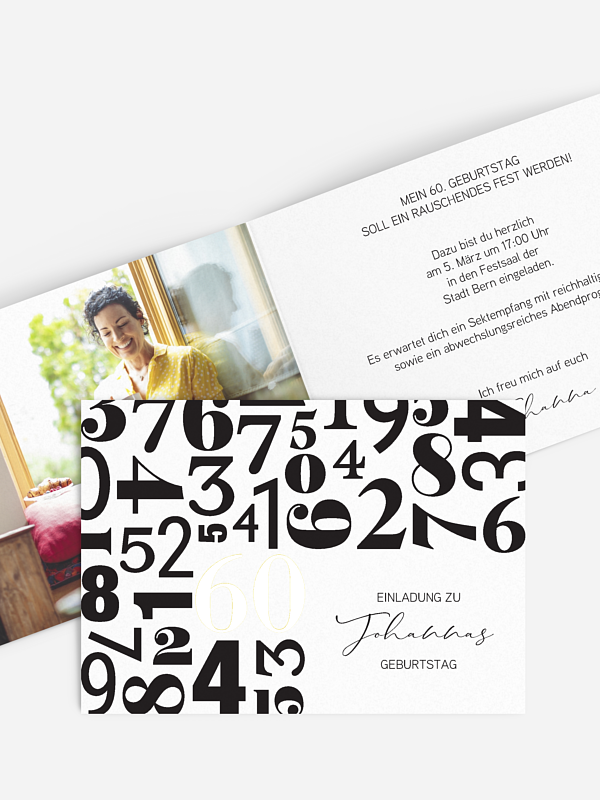 MEIN 60. GEBURTSTAG
SOLL EIN RAUSCHENDES FEST WERDEN!
Dazu bist du herzlich
am 5. März um 17:00 Uhr
in den Festsaal der
Stadt Bern eingeladen.
Es erwartet dich ein Sektempfang mit
sowie ein abwechslungsreiches
Ich freu mich auf euch
60
EINLADUNG ZU
Johannas
GEBURTSTAG